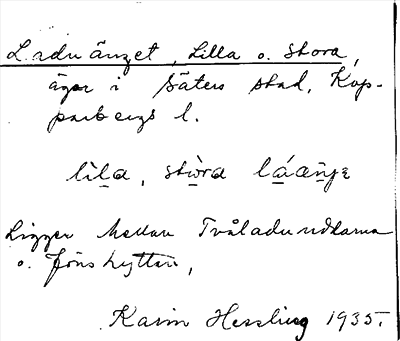 Laduänget, Lilla o. Stora,
ägor i Säters stad, Kop-
parbergs l.
lìla, stòra láänge
Ligger mellan Tvåladundarna
o. Jönshyttan,
Karin Hessling 1935.